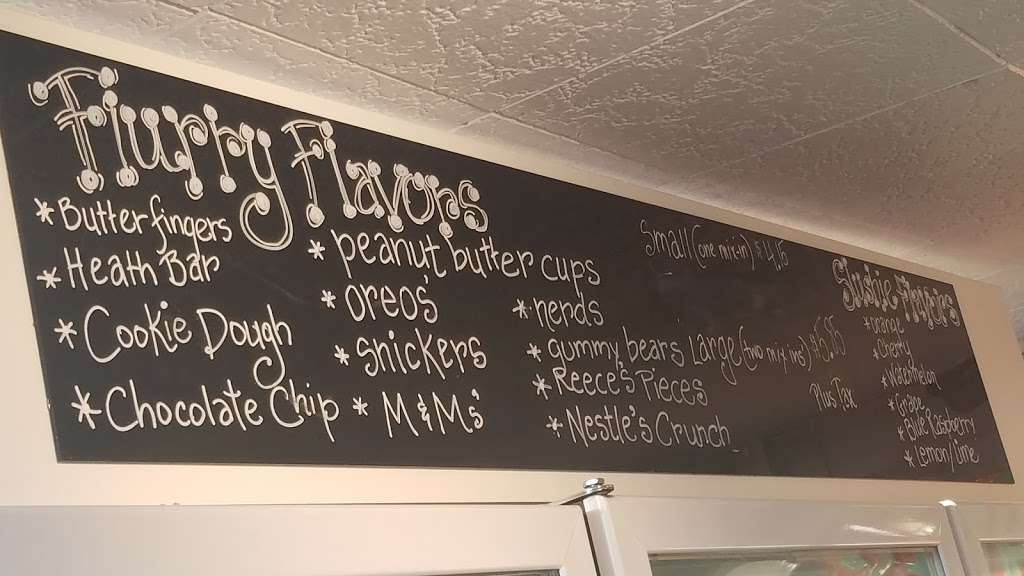 Flurry Flavors
* Butterfingers
* Heath Bar
* Cookie Dough
* Chocolate Chip
* peanut butter cups
* oreos'
* Snickers
* M&Ms'
* nerds
* gummy bears
* Reece's Pieces
* Nestle's Crunch
Small (one mix-in) $4.15
Large (two mix ins) $5.85
Plus Tax
Slushie
* orange
* Cherry
* Watermelon
* Grape
* Blue Raspberry
* Lemon/Lime